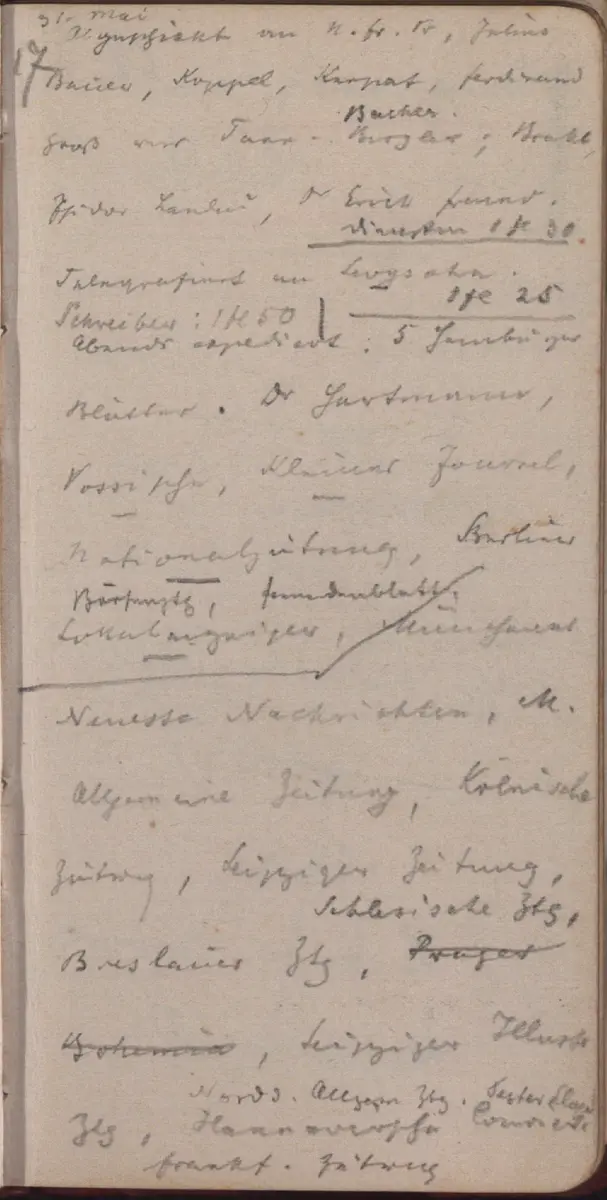 31. Mai
Abgeschickt an N. fr. Pr, Julius
17
Bauer, Koppel, Karpat, Ferdinand
Bacher.
Groß
Isidor Landau, Dr Erich Freund.
Dienstm 1 fl 30
Telegrafiert an Levysohn.
1 fl 25
Schreiber: 1 fl 50
Abends expediert: 5 Hamburger
Blätter. Dr Hartmann,
Vossische, Kleines Journal,
Nationalzeitung, Berliner
Börsenztg, Fremdenblatt,
Lokalanzeiger, Münchener
Neueste Nachrichten, M.
Allgemeine Zeitung, Kölnische
Zeitung, Leipziger Zeitung,
Schlesische Ztg,
Breslauer Ztg, Prager
Bohemia, Leipziger Illustr
Nordd. Allgem Ztg. Pester Lloyd
Ztg, Hannoversche Courier
Frankf. Zeitung